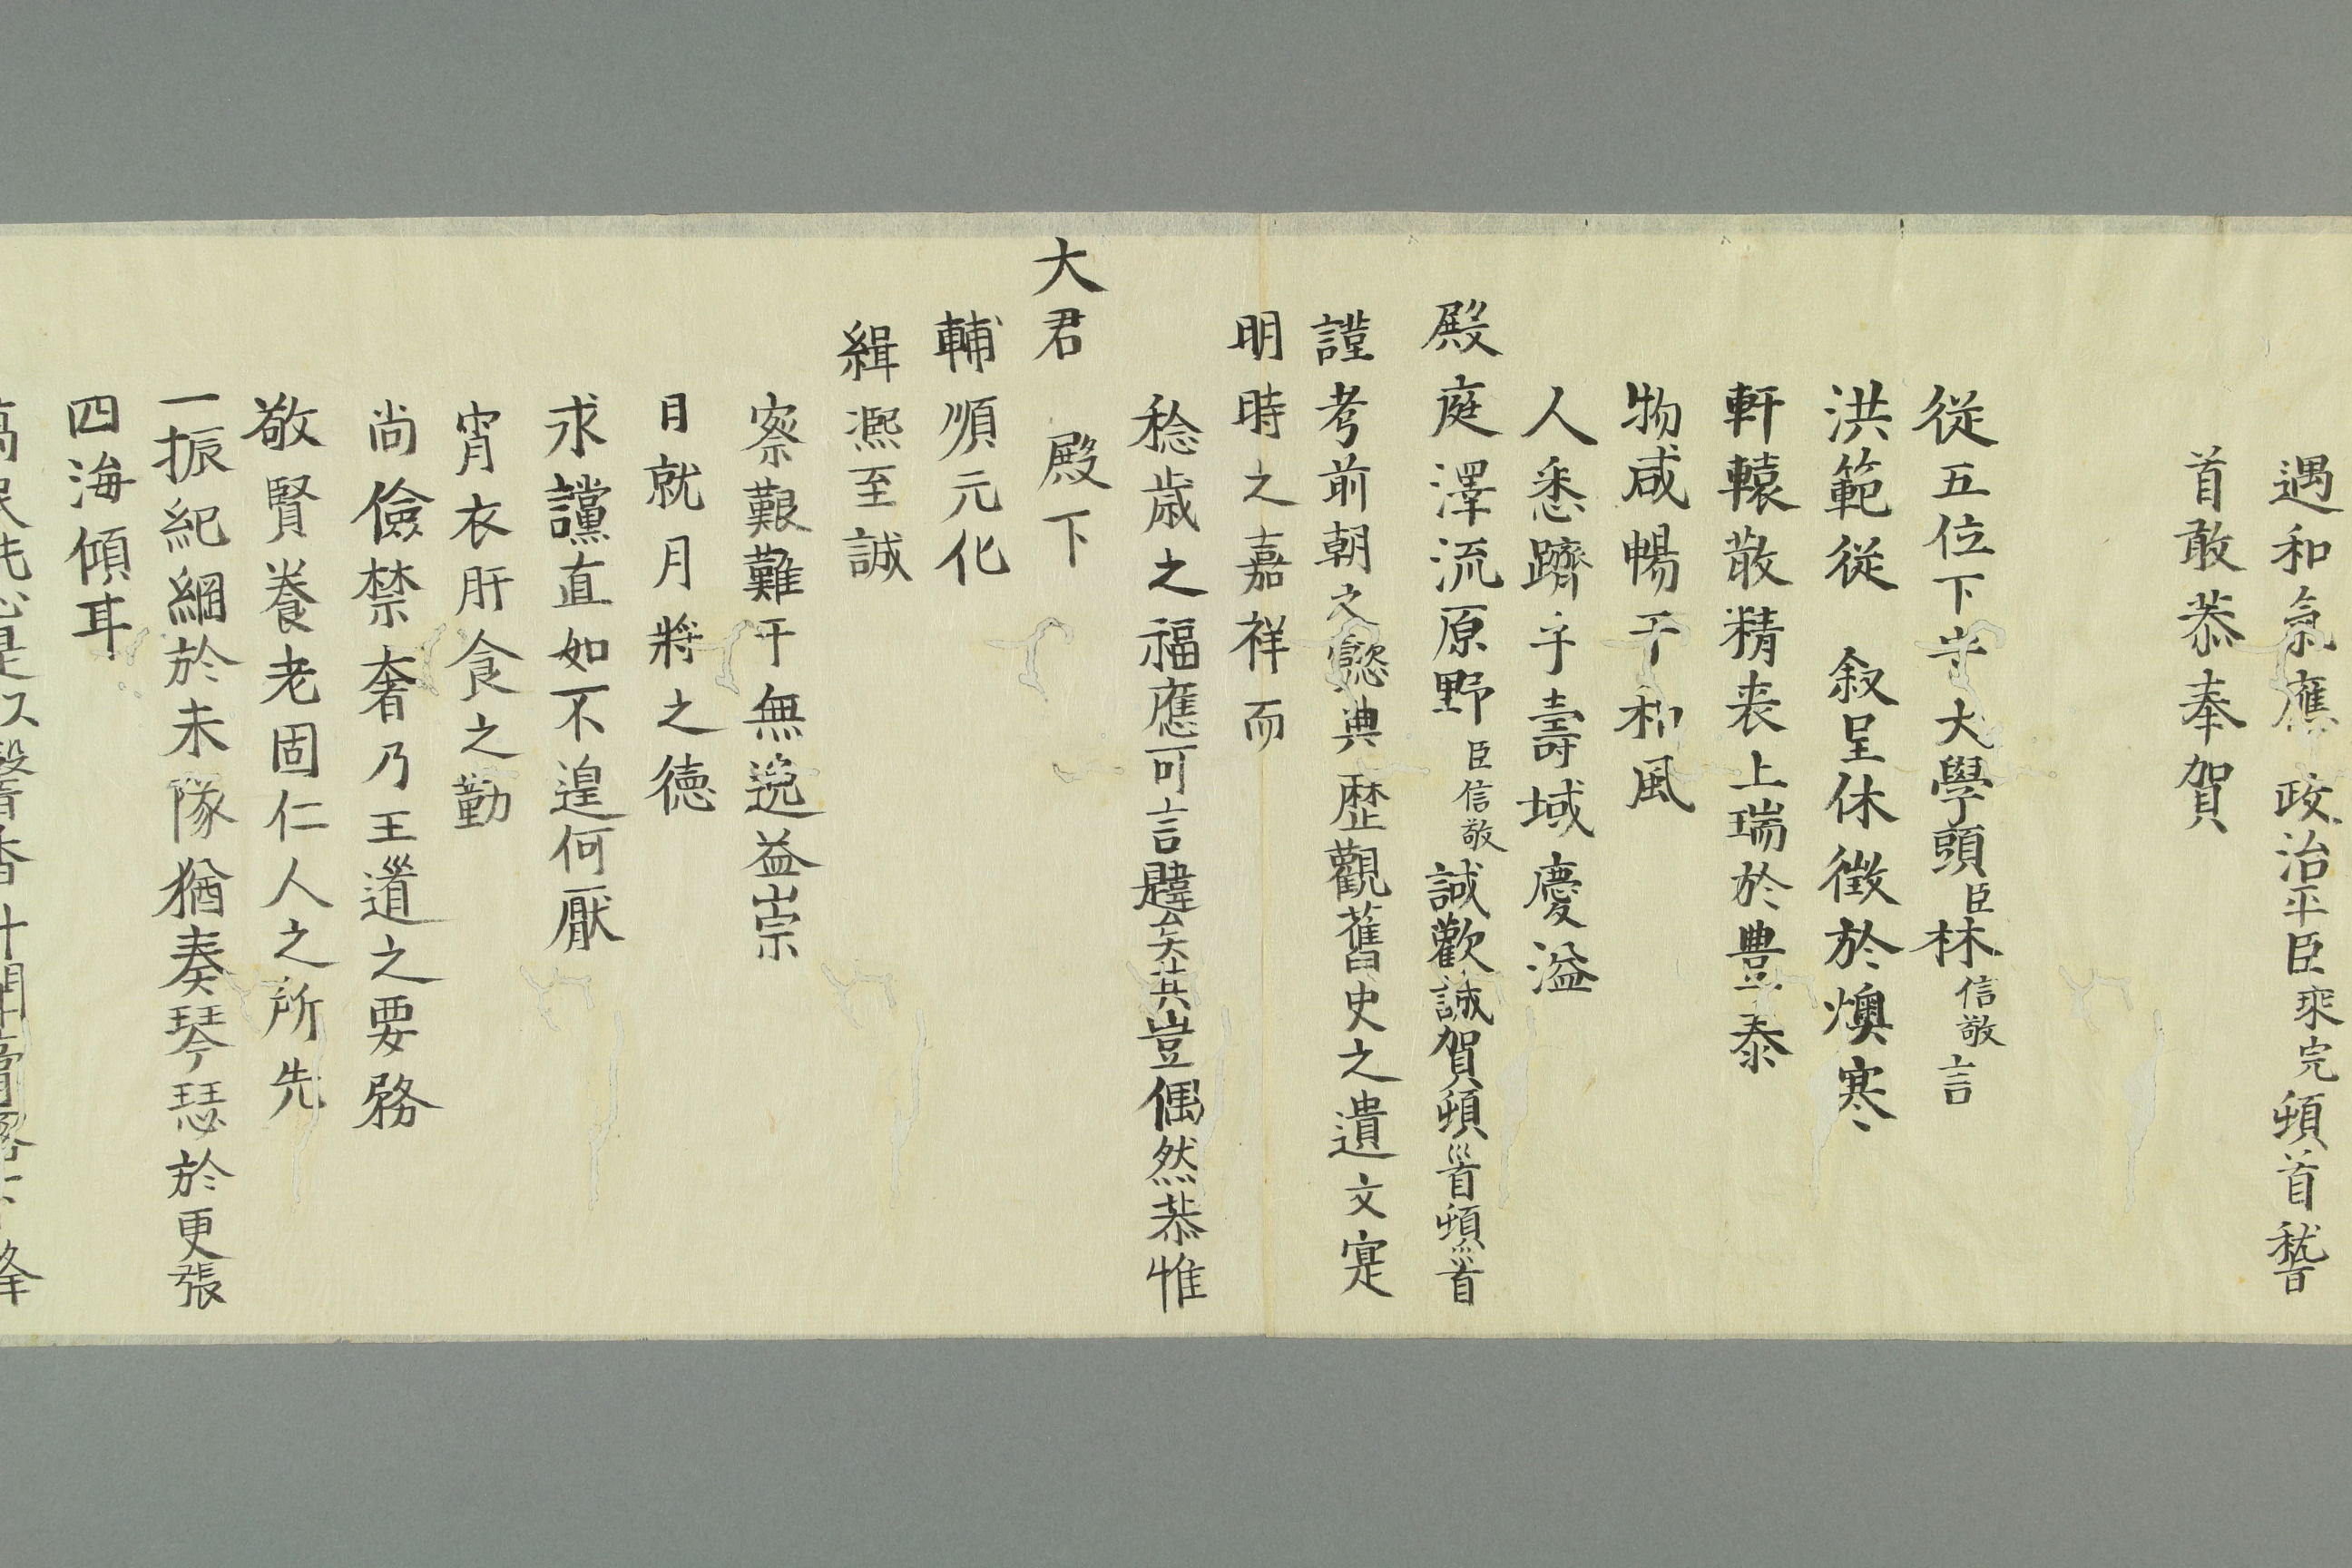 遇和氣應政治平臣衆完頓首嵇
首敢恭奉賀
從五位下守大學頭臣林信敬言
洪範從叙呈休徵於燠寒
軒轅散精表上瑞於豊泰
物咸暢于和風
人悉躋乎壽域慶溢
殿庭澤流原野臣信敬誠歡誠賀頓〻首頓〻首
謹考前朝之懿典歴觀舊史之遺文寔
明時之嘉祥而
稔歳之福應可言韙矣其豈偶然恭惟
大君殿下
輔順元化
緝凞至誠
察艱難于無逸益崇
日就月將之德
求讜直如不遑何厭
宵衣肝食之勤
尚儉禁奢乃王道之要務
敬賢養老固仁人之所先
一振紀綱於未隊猶奏琴瑟於更張
四海傾耳